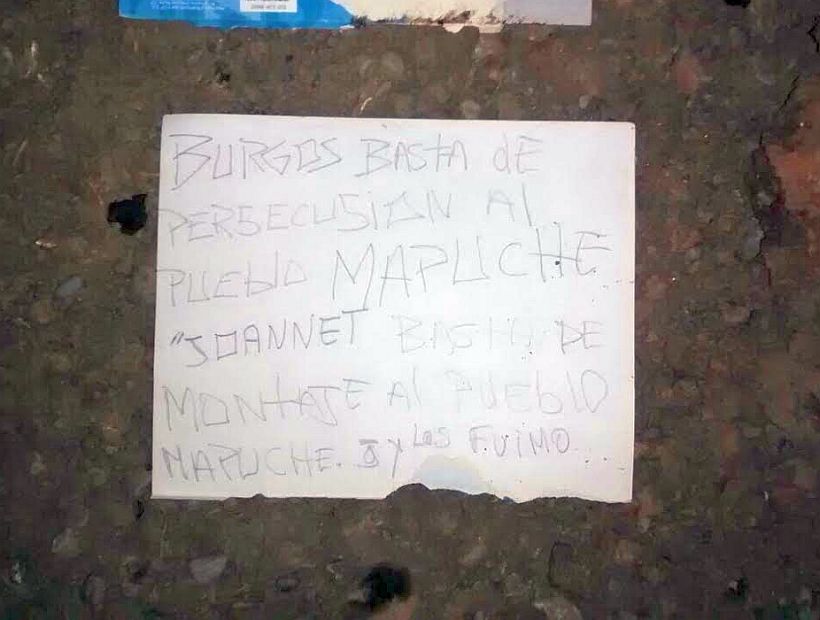 BURGOS BASTA dE
PERSECUSIÓN Al
PUEblO MAPUCHE
"JOANNET BASTA DE
MONTAJE Al PUEblO
MAPUCHE. y los FUIMO...